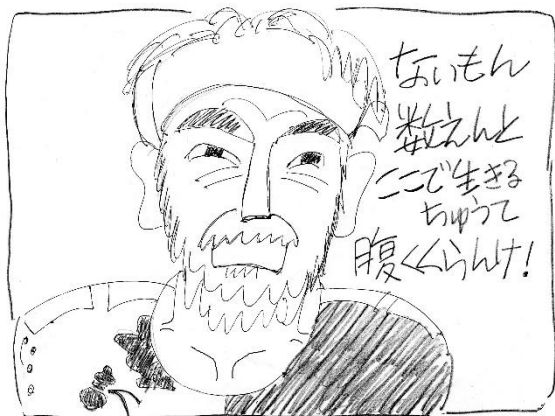 ないもん
数えんと
ここで生きる
ちゅうて
腹くくらんけ!